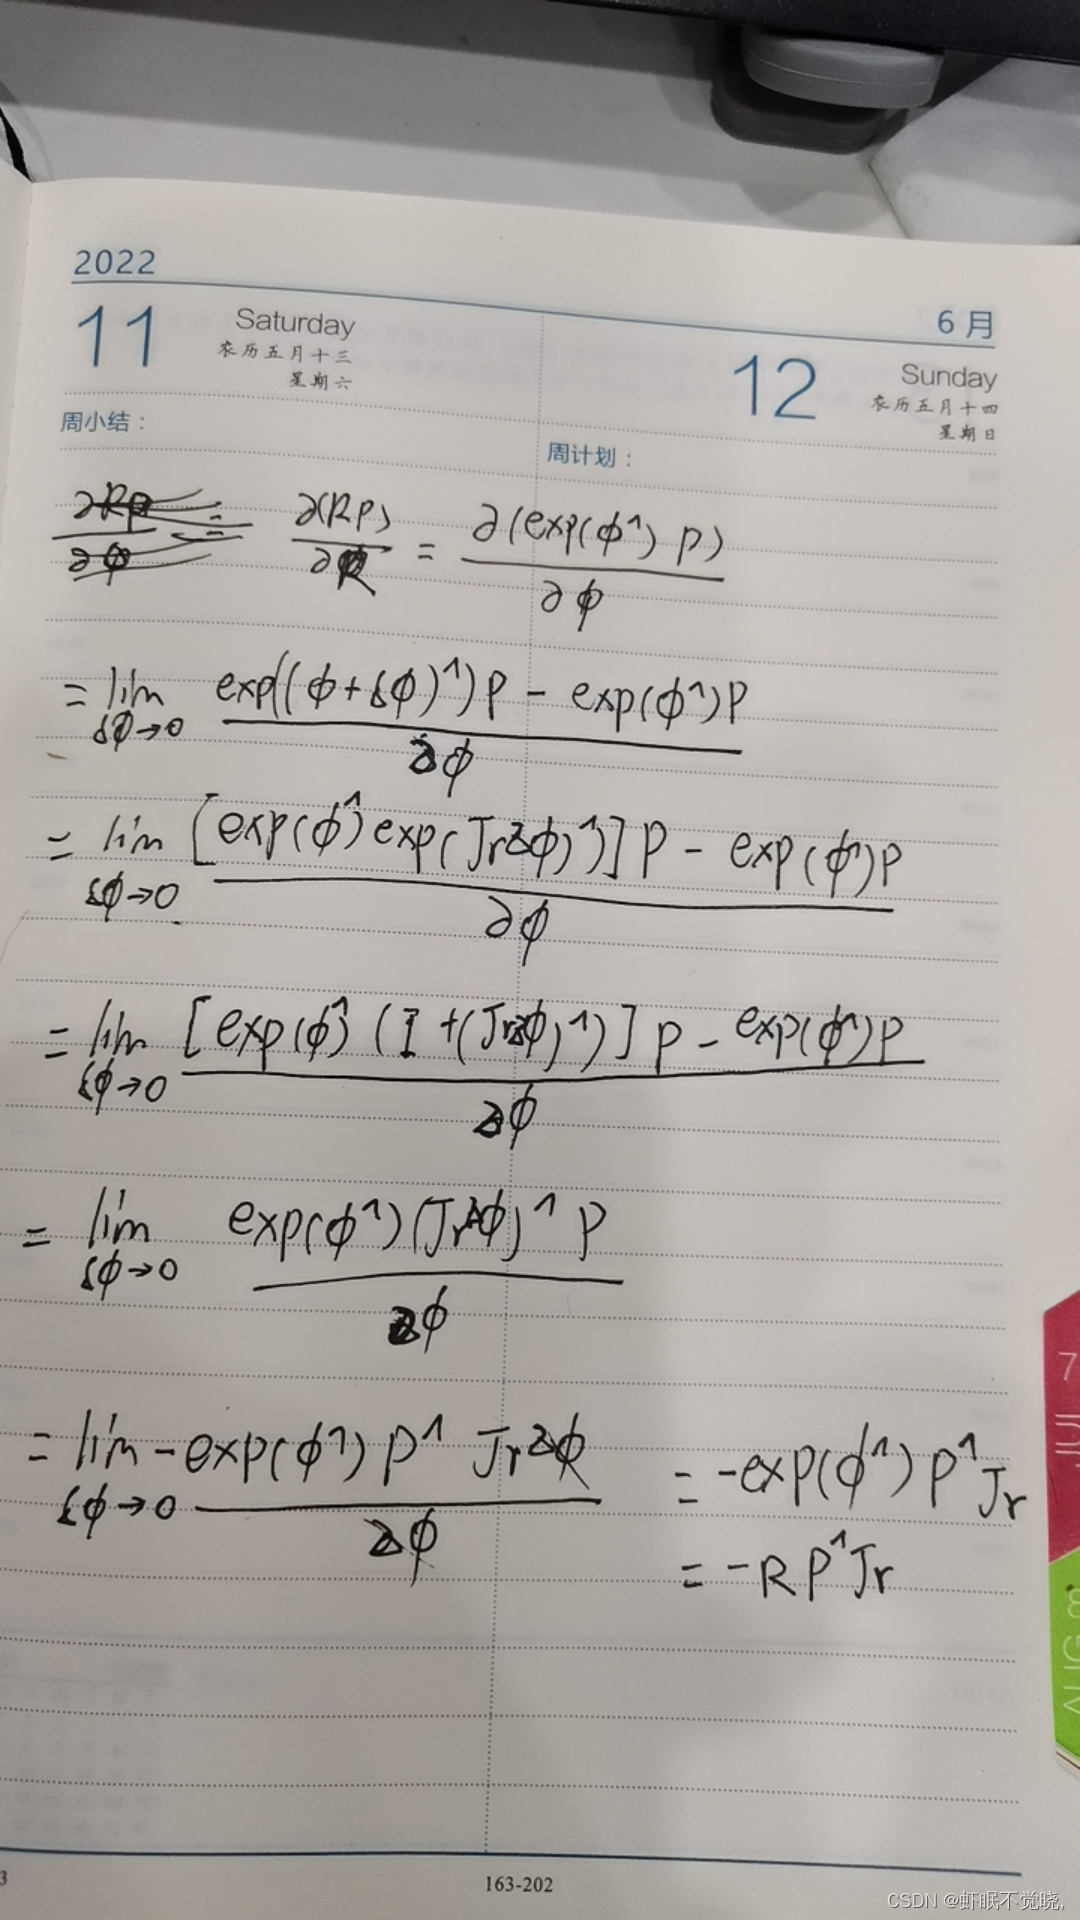 2022
11 Saturday
农历五月十三
星期六
6月
12 Sunday
农历五月十四
星期日
周小结：
周计划：
∂Rp/∂φ = ∂(Rp)/∂R = ∂(exp(φ^) p)/∂φ
= lim δφ→0 exp((φ+δφ)^)p - exp(φ^)p / ∂φ
= lim δφ→0 [exp(φ^) exp(Jr∂φ)^)] p - exp(φ^)p / ∂φ
= lim δφ→0 [exp(φ^) (I+(Jr∂φ)^)] p - exp(φ^)p / ∂φ
= lim δφ→0 exp(φ^)(Jr∂φ)^ p / ∂φ
= lim δφ→0 -exp(φ^) p^ Jr∂φ / ∂φ = -exp(φ^) p^ Jr
= -R p^ Jr
7
AUG 8
3
163-202
CSDN @虾眠不觉晓,